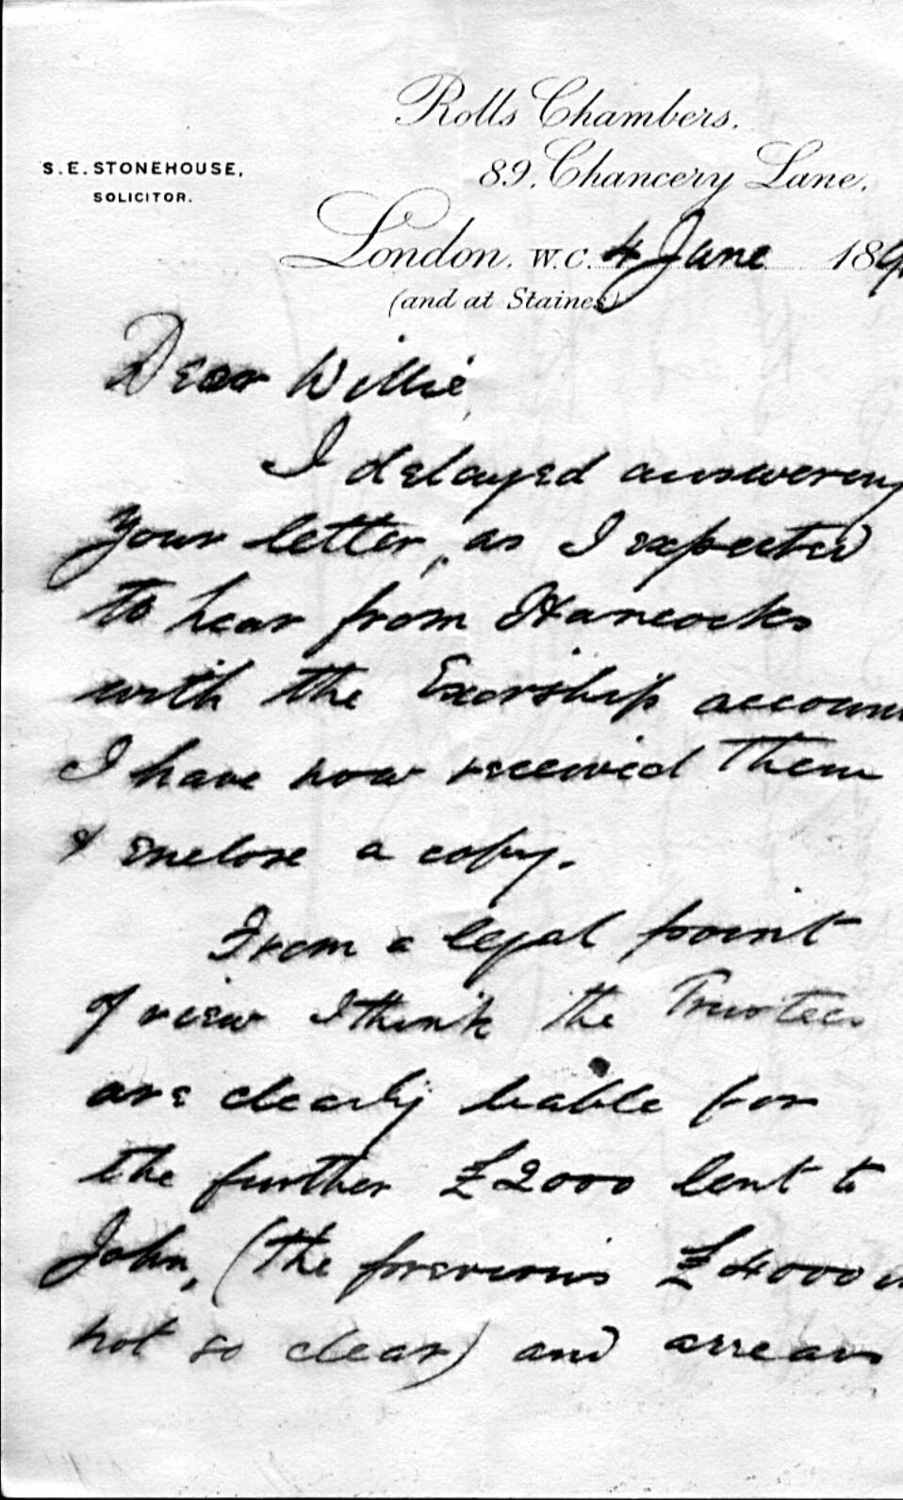 Rolls Chambers.
89, Chancery Lane,
S. E. STONEHOUSE,
SOLICITOR.
London. W.C. 4 June 189
(and at Staines)
Dear Willie,
I delayed answering
your letter, as I expected
to hear from Hancocks
with the Exorship accoun
I have now received them
& enclose a copy.
From a legal point
of view I think the Trustees
are clearly liable for
the further £2000 lent to
John, (the previous £4000
not so clear) and arrears